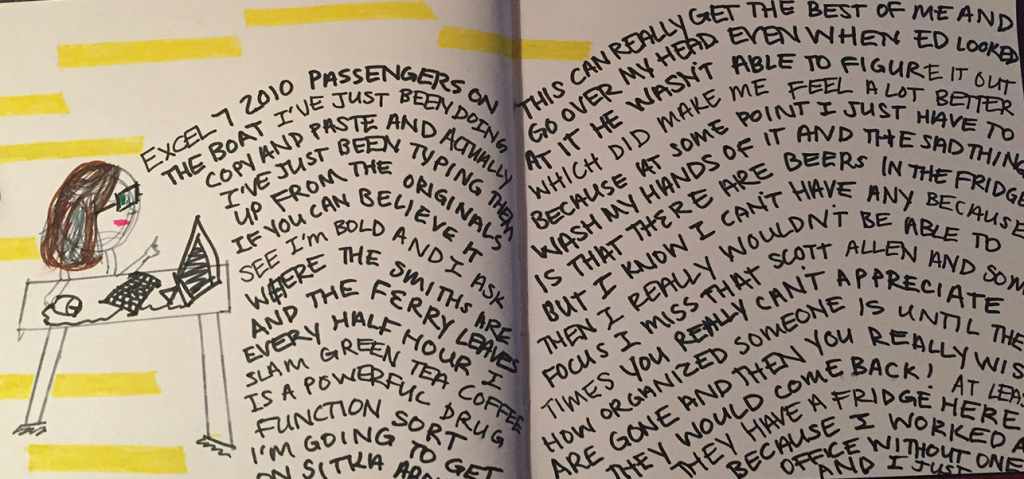 EXCEL 7 2010 PASSENGERS ON
THE BOAT I'VE JUST BEEN DOING
COPY AND PASTE AND ACTUALLY
I'VE JUST BEEN TYPING THEM
UP FROM THE ORIGINALS
IF YOU CAN BELIEVE IT
SEE I'M BOLD AND I ASK
WHERE THE SMITHS ARE
AND THE FERRY LEAVES
EVERY HALF HOUR I
SLAM GREEN TEA COFFEE
IS A POWERFUL DRUG
FUNCTION SORT
I'M GOING TO GET
ON SITKA
THIS CAN REALLY GET THE BEST OF ME AND
GO OVER MY HEAD EVEN WHEN ED LOOKED
AT IT HE WASN'T ABLE TO FIGURE IT OUT
WHICH DID MAKE ME FEEL A LOT BETTER
BECAUSE AT SOME POINT I JUST HAVE TO
WASH MY HANDS OF IT AND THE SAD THING
IS THAT THERE ARE BEERS IN THE FRIDGE
BUT I KNOW I CAN'T HAVE ANY BECAUSE
THEN I REALLY WOULDN'T BE ABLE TO
FOCUS I MISS THAT SCOTT ALLEN AND SOM
TIMES YOU REALLY CAN'T APPRECIATE
HOW ORGANIZED SOMEONE IS UNTIL THEY
ARE GONE AND THEN YOU REALLY WIS
THEY WOULD COME BACK! AT LEAS
THEY HAVE A FRIDGE HERE
BECAUSE I WORKED A
OFFICE WITHOUT ONE
AND I JUST